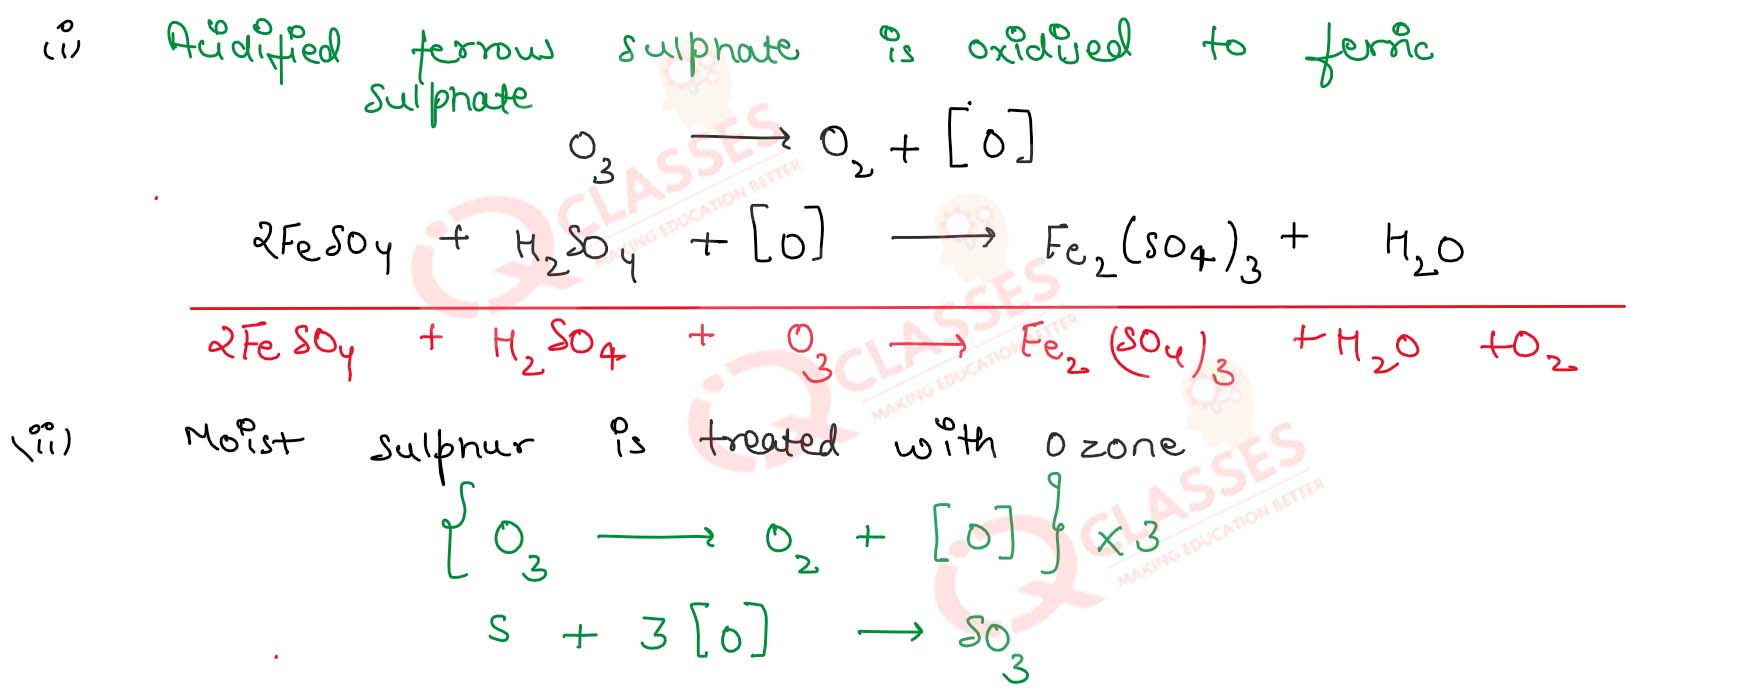 (i) Acidified ferrous sulphate is oxidised to ferric
sulphate
O₃ ⟶ O₂ + [O]
2FeSO₄ + H₂SO₄ + [O] ⟶ Fe₂(SO₄)₃ + H₂O
2FeSO₄ + H₂SO₄ + O₃ ⟶ Fe₂(SO₄)₃ + H₂O + O₂
(ii) Moist sulphur is treated with ozone
{O₃ ⟶ O₂ + [O]} × 3
S + 3[O] ⟶ SO₃
IQ CLASSES
MAKING EDUCATION BETTER
IQ CLASSES
MAKING EDUCATION BETTER
IQ CLASSES
MAKING EDUCATION BETTER